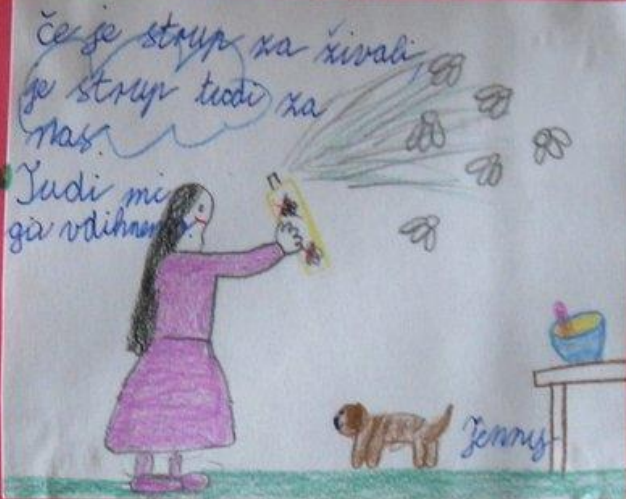 če je strup za živali,
je strup tudi za
nas.
Tudi mi
ga vdihnemo.
Jenny